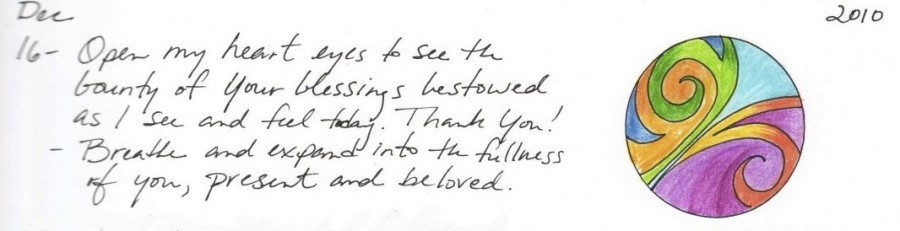 Dec 2010
16- Open my heart eyes to see the
bounty of Your blessings bestowed
as I see and feel today. Thank You!
- Breathe and expand into the fullness
of you, present and beloved.